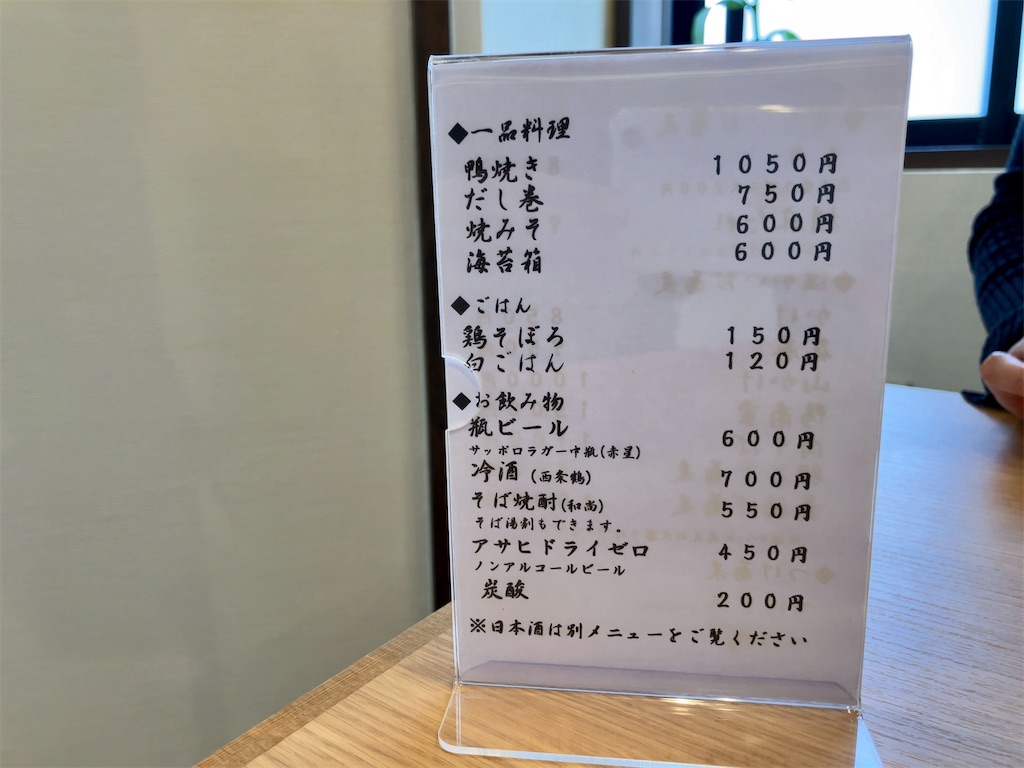 ◆一品料理
鴨焼き 1050円
だし巻 750円
焼みそ 600円
海苔箱 600円
◆ごはん
鶏そぼろ 150円
白ごはん 120円
◆お飲み物
瓶ビール 600円
サッポロラガー中瓶(赤星)
冷酒 (西条鶴) 700円
そば焼酎(和尚) 550円
そば湯割もできます。
アサヒドライゼロ 450円
ノンアルコールビール
炭酸 200円
※日本酒は別メニューをご覧ください